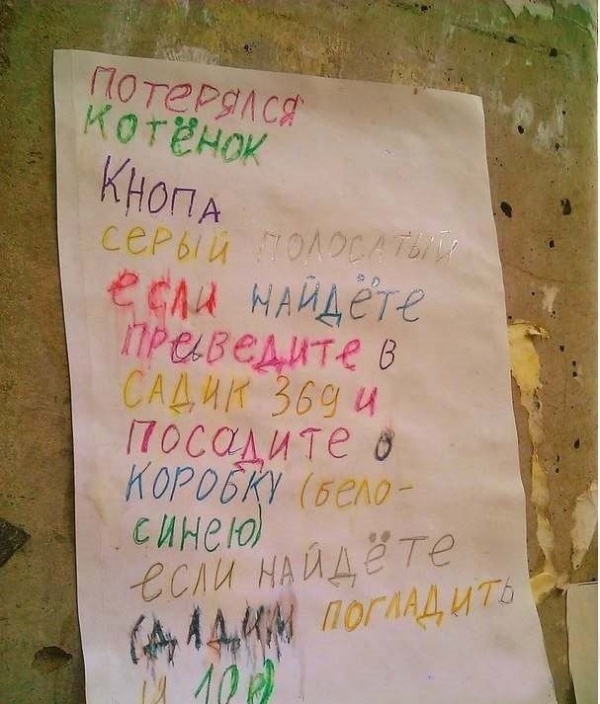 ПОТЕРЯЛСЯ
КОТЁНОК
КНОПА
СЕРЫЙ ПОЛОСАТЫЙ
если НАЙДЁТЕ
ПРеВЕДИТЕ В
САДИК 369 и
ПОСАДИТЕ
КОРОБКУ (бело-
синею)
если НАЙДЁТЕ
ДАДИМ ПОГЛАДИТЬ
и 10р